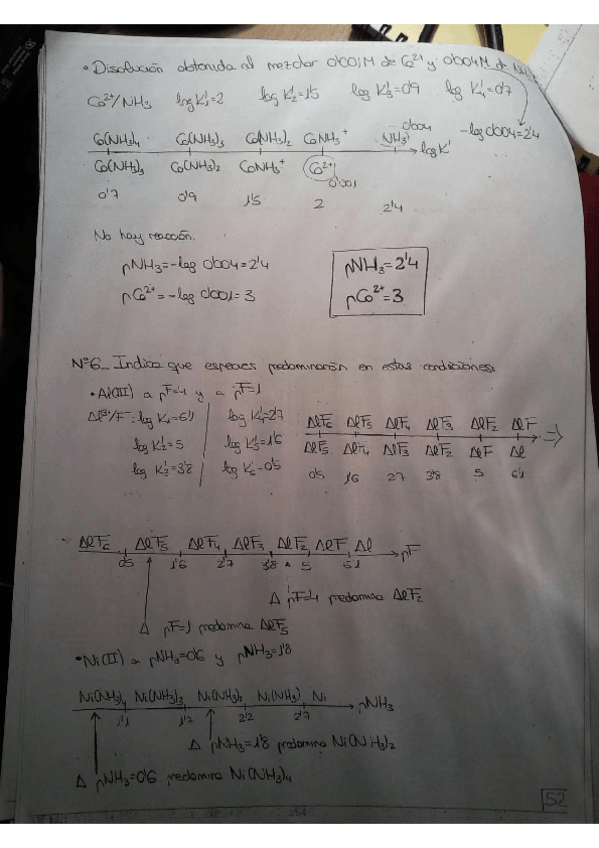 • Disolución obtenida al mezclar 0'001M de Co²⁺ y 0'004M de NH₃
Co²⁺/NH₃ log K'₁=2 log K'₂=1'5 log K'₃=0'9 log K'₄=0'7
0'004 -log 0'004=2'4
Co(NH₃)₄ Co(NH₃)₃ Co(NH₃)₂ CoNH₃⁺ NH₃
log K'
Co(NH₃)₃ Co(NH₃)₂ CoNH₃⁺ Co²⁺
0'001
0'7 0'9 1'5 2 2'4
No hay reacción.
pNH₃=-log 0'004=2'4 pNH₃=2'4
pCo²⁺=-log 0'001=3 pCo²⁺=3
Nº6_ Indica que especies predominarán en estas condiciones:
• Al(III) a pF=4 y a pF=1
Al³⁺/F⁻ log K₁=6'1 log K'₄=2'7 AlF₆ AlF₅ AlF₄ AlF₃ AlF₂ AlF
log K'₂=5 log K'₅=1'6 ⇒
log K'₃=3'8 log K'₆=0'5 AlF₅ AlF₄ AlF₃ AlF₂ AlF Al
0'5 1'6 2'7 3'8 5 6'1
AlF₆ AlF₅ AlF₄ AlF₃ AlF₂ AlF Al pF
0'5 1'6 2'7 3'8 5 6'1
A pF=4 predomina AlF₂
A pF=1 predomina AlF₅
• Ni(II) a pNH₃=0'6 y pNH₃=1'8
Ni(NH₃)₄ Ni(NH₃)₃ Ni(NH₃)₂ Ni(NH₃) Ni pNH₃
1'1 1'7 2'2 2'7
A pNH₃=1'8 predomina Ni(NH₃)₂
A pNH₃=0'6 predomina Ni(NH₃)₄
52